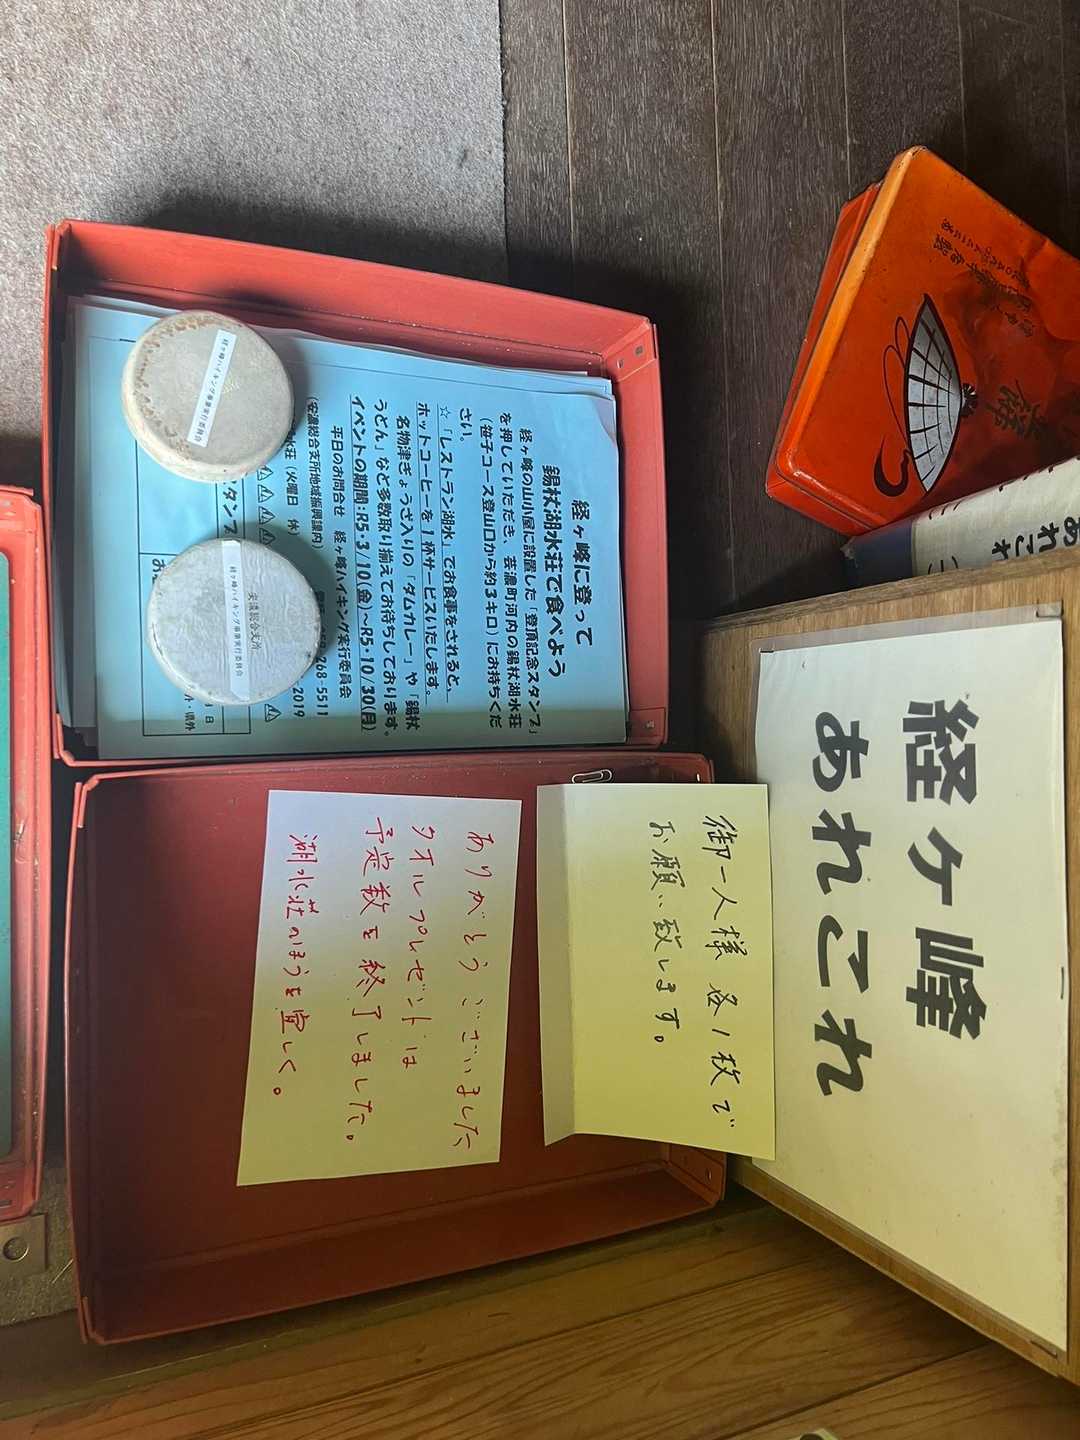 経ヶ峰
あれこれ
御一人様 各1枚で
お願い致します。
ありがとうございました
タオルプレゼントは
予定数を終了しました。
湖水荘のほうを宜しく。
経ヶ峰に登って
錫杖湖水荘で食べよう
経ヶ峰の山小屋に設置した「登頂記念スタンプ」
を押していただき、芸濃町河内の錫杖湖水荘
(笹子コース登山口から約3キロ)にお持ちくだ
さい。
☆「レストラン湖水」でお食事をされると、
ホットコーヒーを1杯サービスいたします。
名物津ぎょうざ入りの「ダムカレー」や「錫杖
うどん」など多数取り揃えてお待ちしております。
イベントの期間:R5・3/10(金)~R5・10/30(月)
平日のお問合せ 経ヶ峰ハイキング実行委員会
(安濃総合支所地域振興課内)
268-5511
水荘(火曜日 休)
2019
タンプ
日
・県外
経ヶ峰ハイキング事業実行委員会
安濃総合支所
経ヶ峰ハイキング事業実行委員会
あれこれ